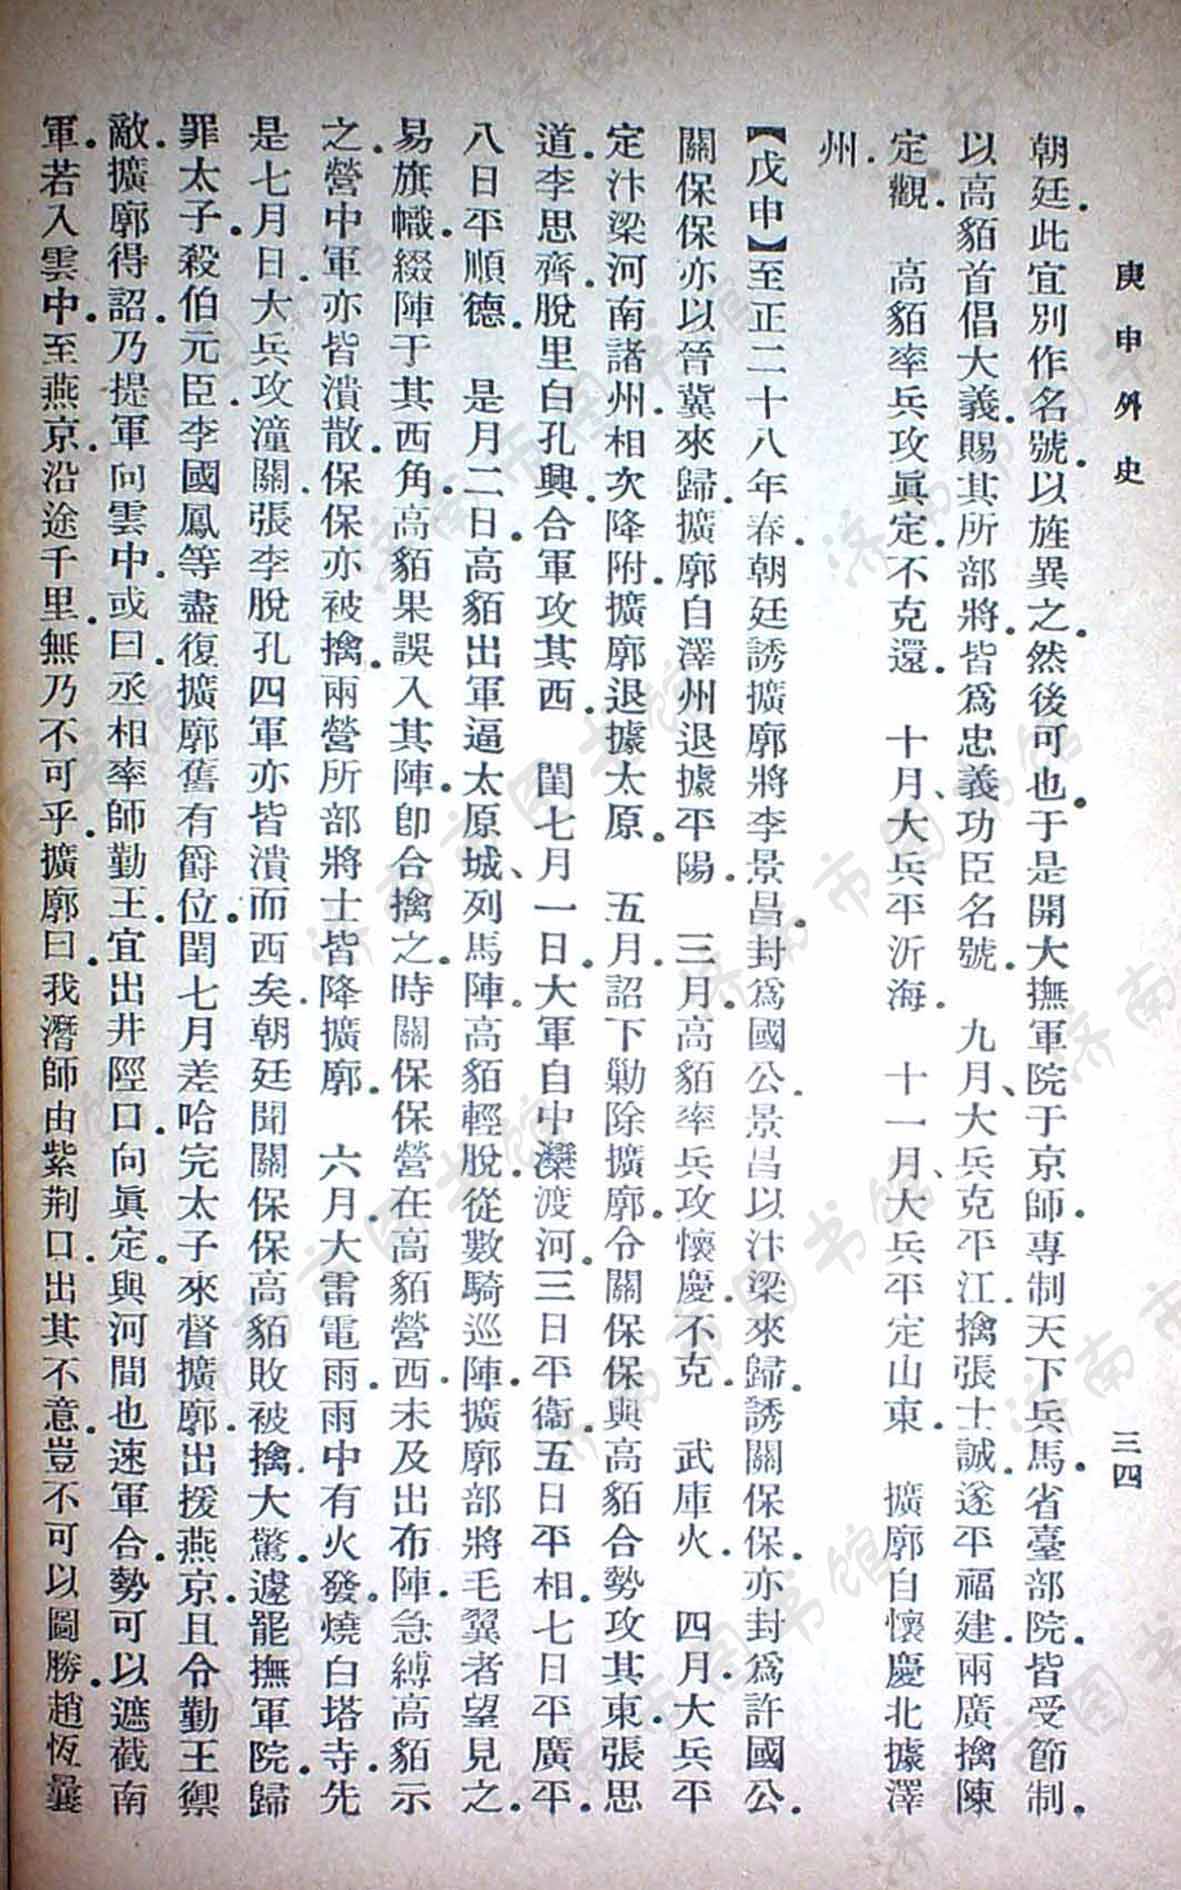 庚申外史
三四
朝廷.此宜別作名號.以旌異之.然後可也.于是開大撫軍院于京師.專制天下兵馬.省臺部院.皆受節制.
以高貊首倡大義.賜其所部將.皆爲忠義功臣名號.　九月、大兵克平江.擒張士誠.遂平福建.兩廣擒陳
定觀.　高貊率兵攻眞定.不克還.　十月、大兵平沂海.　十一月、大兵平定山東.　擴廓自懷慶北據澤
州.
【戊申】至正二十八年春.朝廷誘擴廓將李景昌.封爲國公.景昌以汴梁來歸.誘關保保.亦封爲許國公.
關保保亦以晉冀來歸.擴廓自澤州退據平陽.　三月.高貊率兵攻懷慶.不克.　武庫火.　四月.大兵平
定汴梁河南諸州.相次降附.擴廓退據太原.　五月.詔下勦除擴廓.令關保保與高貊合勢攻其東.張思
道.李思齊.脫里白孔興.合軍攻其西.　閏七月一日.大軍自中灤渡河.三日平衞.五日平相.七日平廣平.
八日平順德.　是月二日.高貊出軍逼太原城、列馬陣.高貊輕脫.從數騎巡陣.擴廓部將毛翼者望見之.
易旗幟.綴陣于其西角.高貊果誤入其陣.卽合擒之.時關保保營在高貊營西.未及出布陣.急縛高貊示
之.營中軍亦皆潰散.保保亦被擒.兩營所部將士皆降擴廓.　六月.大雷電雨.雨中有火發.燒白塔寺.先
是七月日.大兵攻潼關.張李脫孔四軍亦皆潰而西矣.朝廷聞關保保高貊敗被擒.大驚.遽罷撫軍院.歸
罪太子.殺伯元臣.李國鳳等.盡復擴廓舊有爵位.閏七月差哈完太子來督擴廓.出援燕京.且令勤王禦
敵.擴廓得詔.乃提軍向雲中.或曰.丞相率師勤王.宜出井陘口.向眞定.與河間也速軍合.勢可以遮截南
軍.若入雲中.至燕京.沿途千里.無乃不可乎.擴廓曰.我潛師由紫荆口.出其不意.豈不可以圖勝.趙恆曩